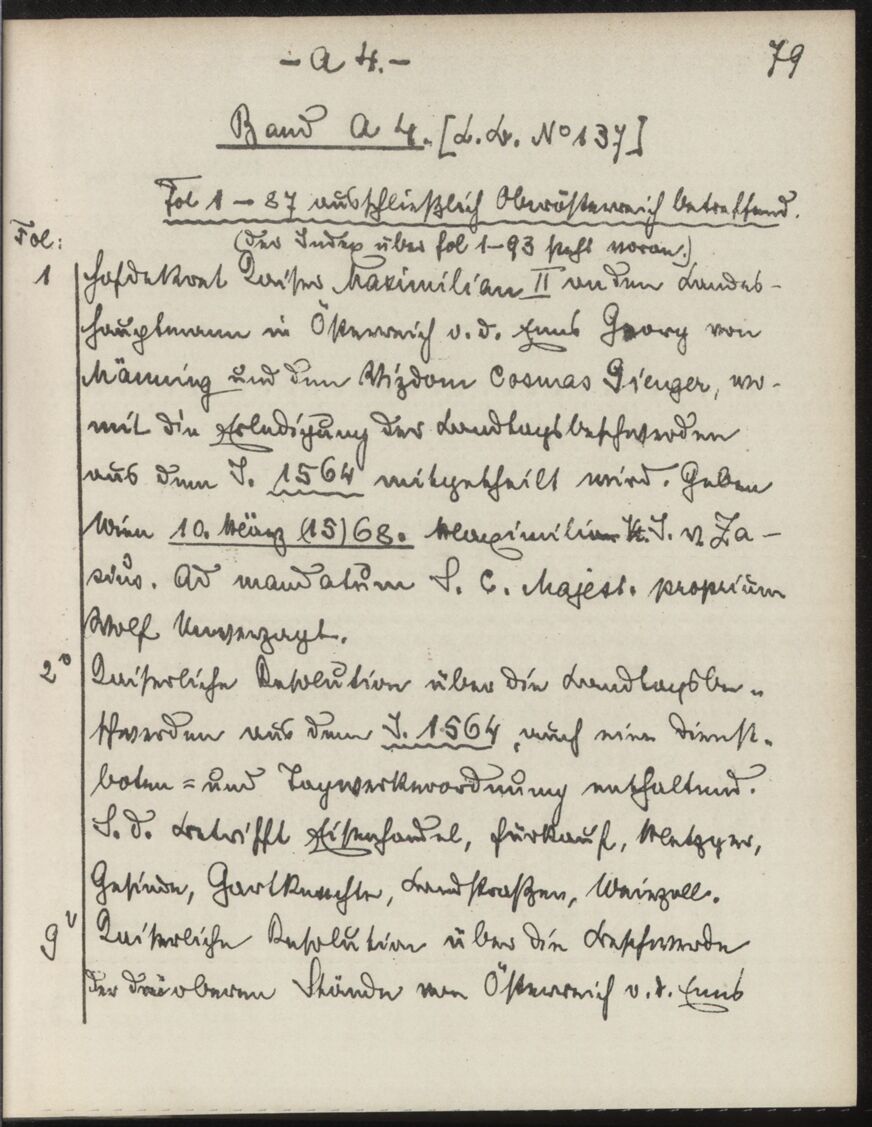 - A 4. - 79
Band A 4. [L. L. No 137]
Fol 1 - 87 ausschließlich Oberösterreich betreffend.
(Der Index über fol 1-93 steht voran.)
Fol:
1 Hofdekret Kaiser Maximilian II an den Landes-
hauptmann in Österreich o. d. Enns Georg von
Männing und den Vizdom Cosmas Gienger, wo-
mit die Erledigung der Landtagsbeschwerden
aus dem J. 1564 mitgetheilt wird. Geben
Wien 10. März (15)68. Maximilian J. v. Za-
sius. Ad mandatum S. C. Majest. proprium
Wolf Unverzagt.
2v Kaiserliche Resolution über die Landtagsbe-
schwerden aus dem J. 1564, auch eine Dienst-
boten = und Tagwerkerordnung enthaltend.
S. d. Betrifft Eisenhandel, Fürkauf, Metzger,
Gesinde, Gartknechte, Landstraßen, Weinzoll.
9v Kaiserliche Resolution über die Beschwerde
der drei oberen Stände von Österreich o. d. Enns